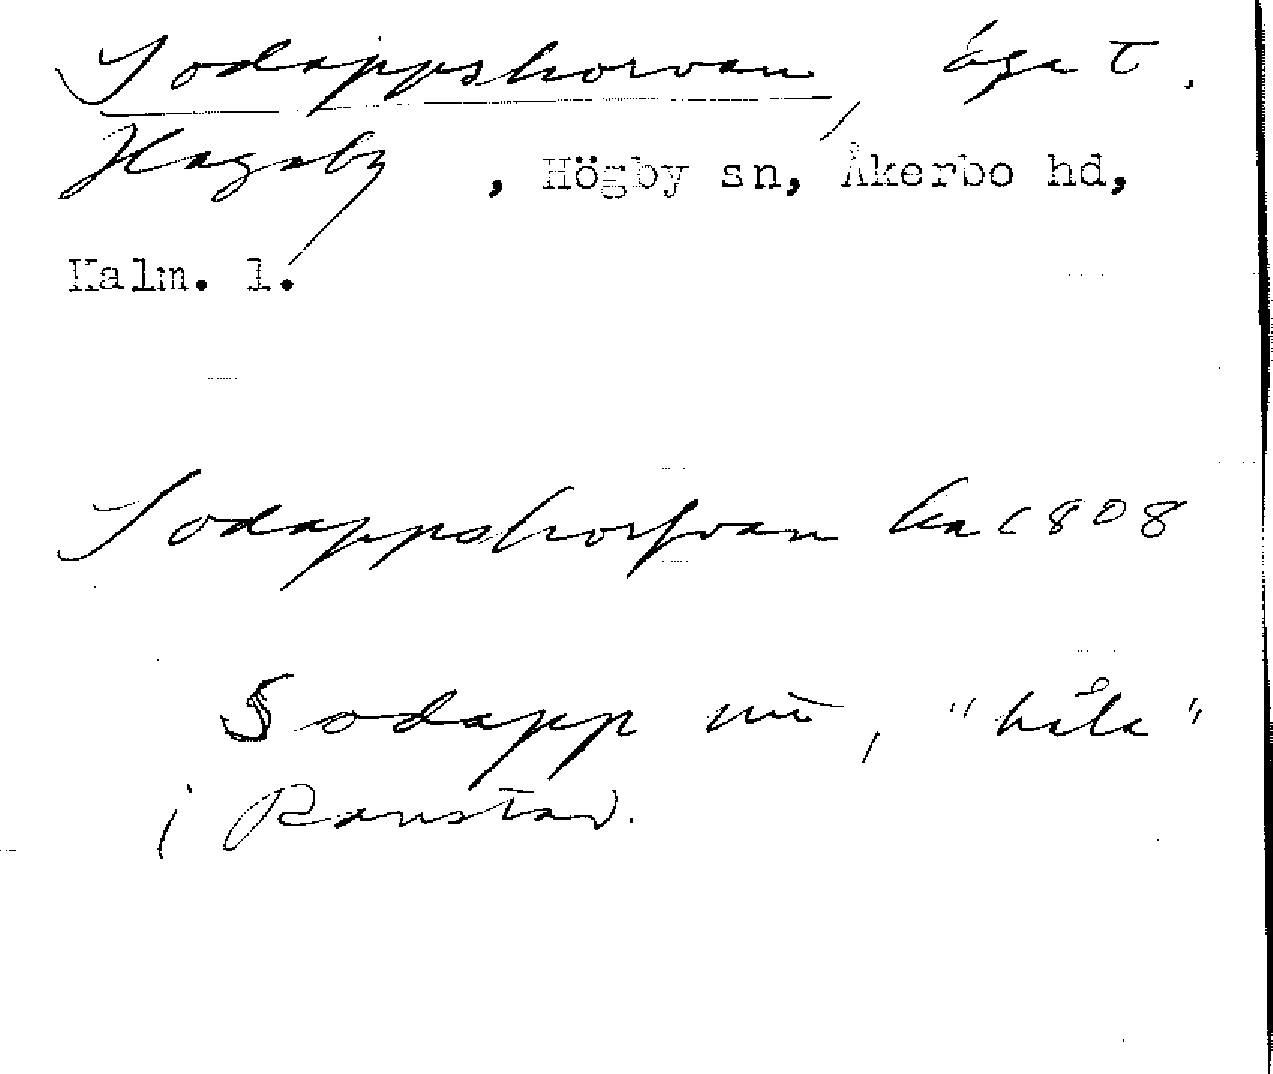 Sodappskorvan, äga t.
Hagaby, Högby sn, Åkerbo hd,
Kalm. l.
Sodappskorfvan ka 1808
Sodapp nu, "håla"
i Ranstad.